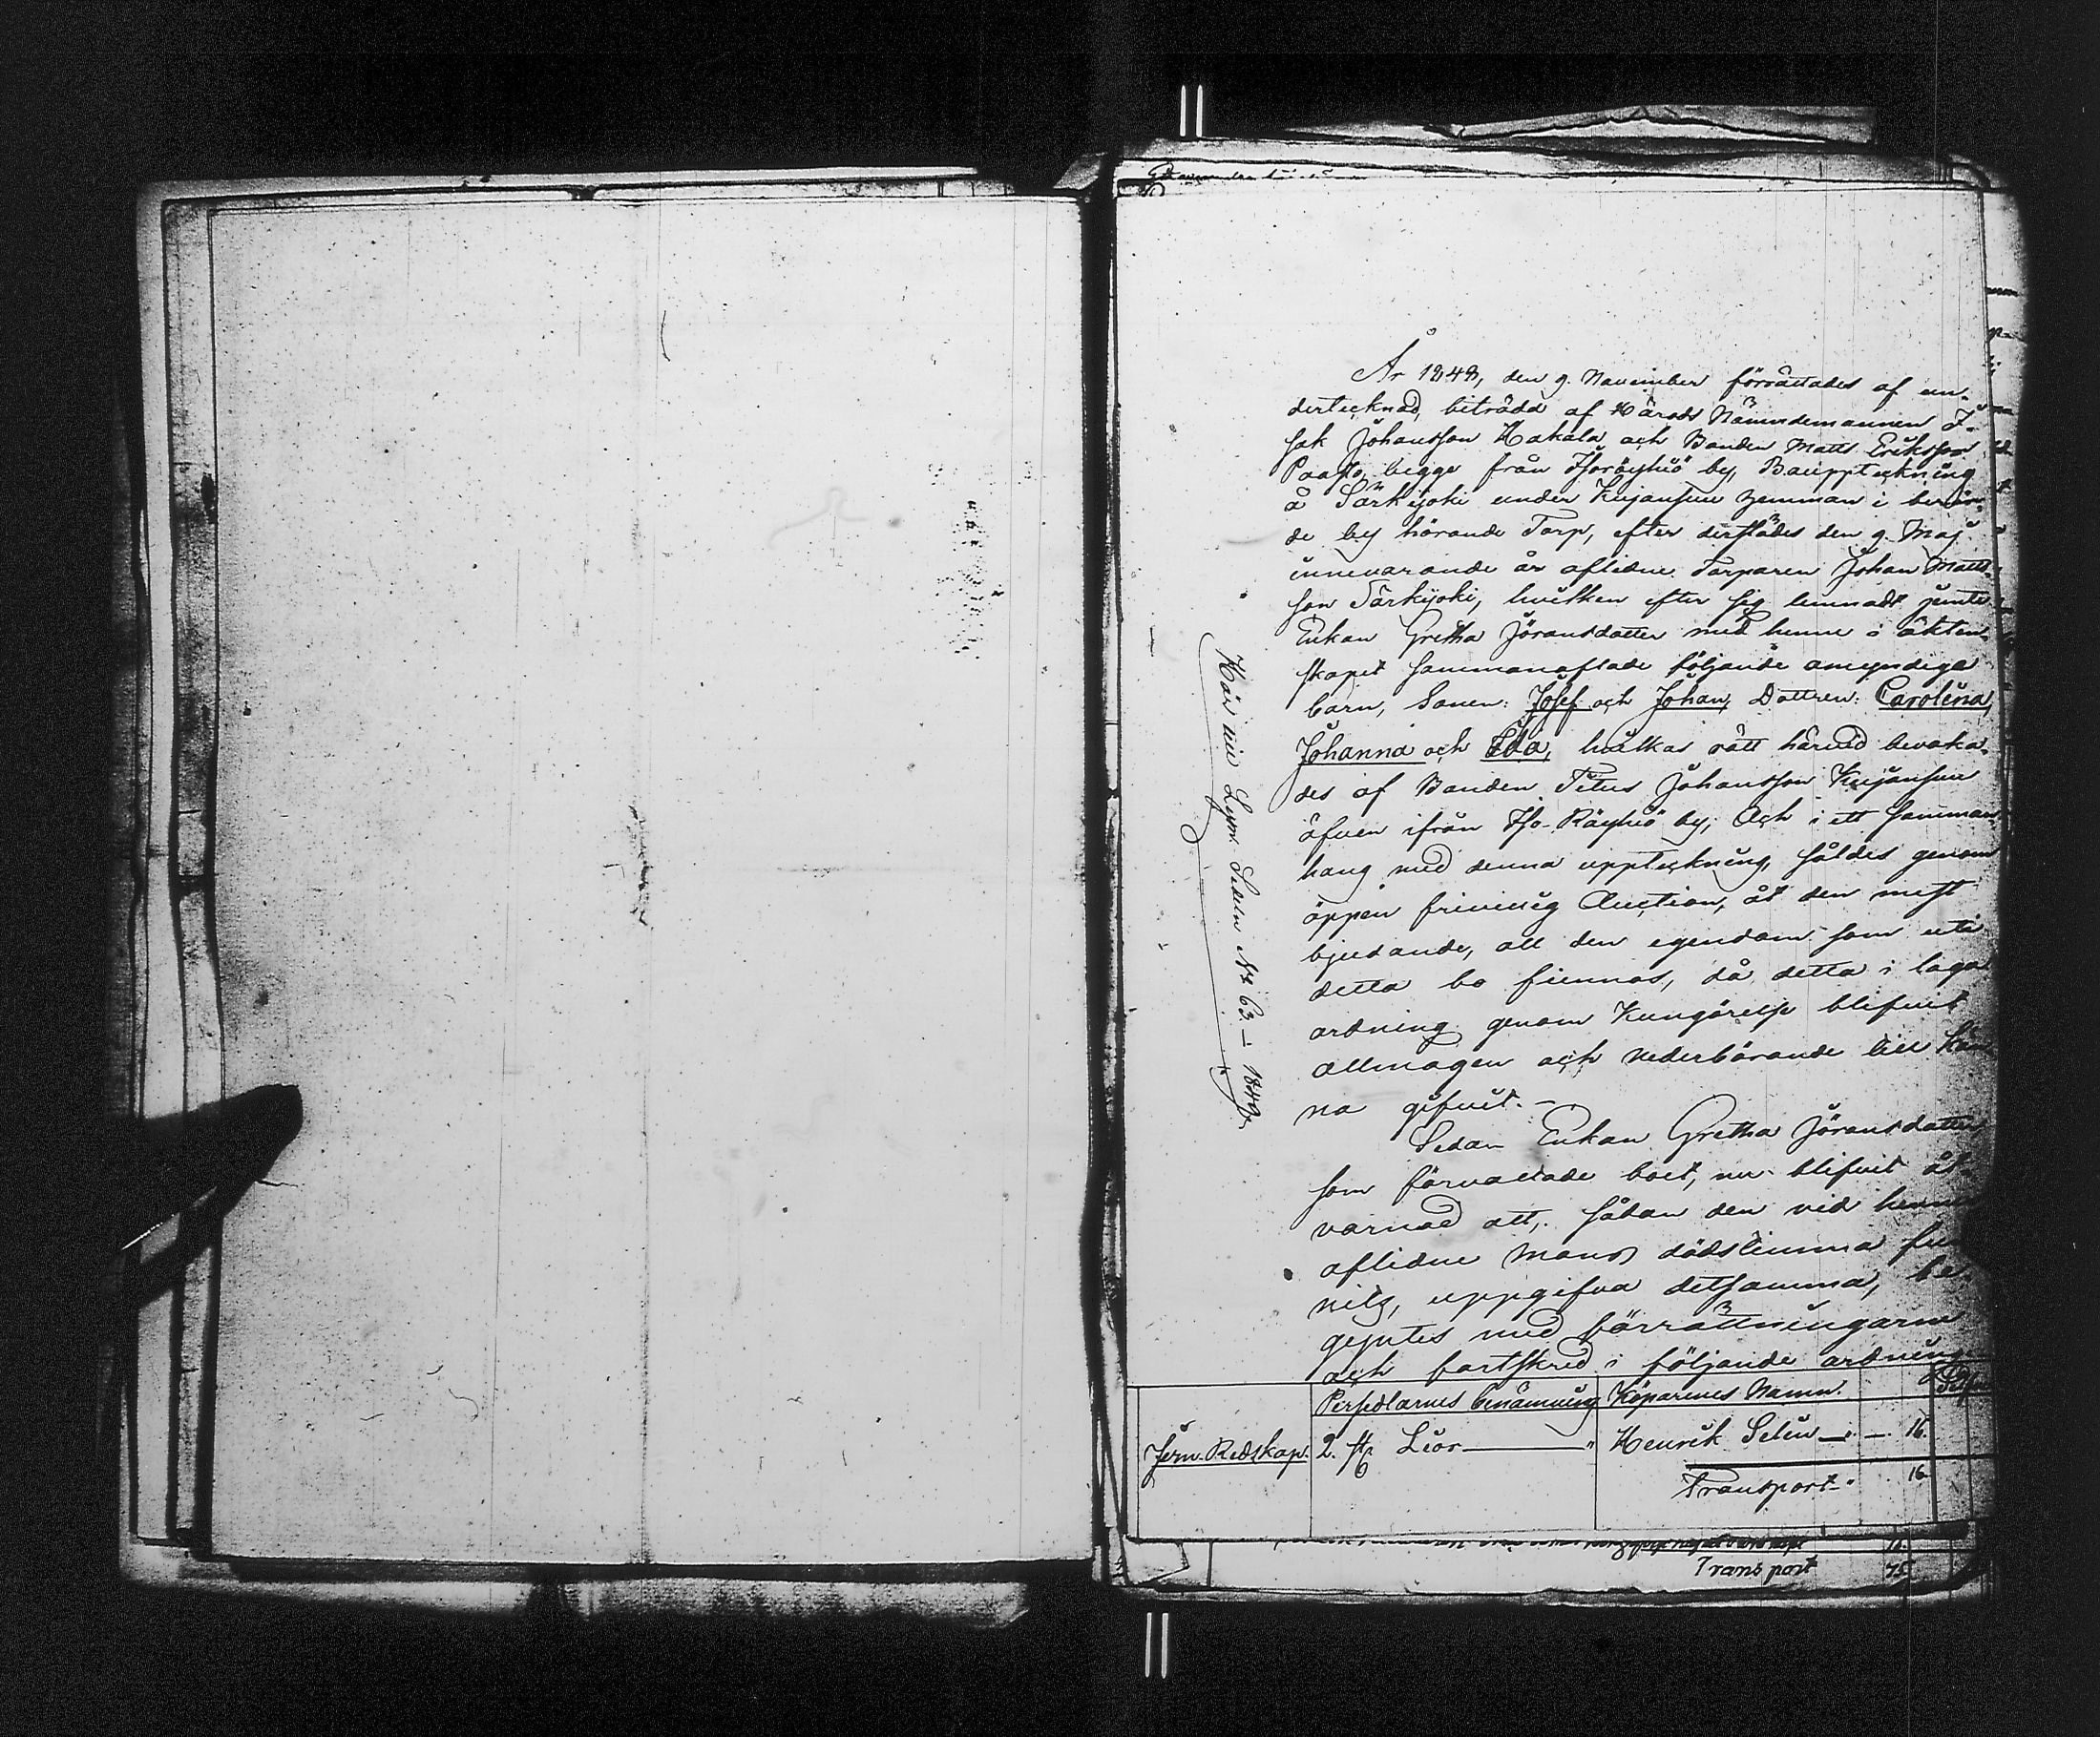 År 1848, den 9. November förrättades af un-
dertecknad, biträdd af Härads Nämndemannen I-
sak Johansson Hakala och Bonden Matts Eriksson
Paasto, begge från Isoröyhiö by, Bouppteckning
å Särkijoki under Kujansuu hemman i berör-
de by hörande Torp, efter derstädes den 9. Maj
innevarande år aflidne Torparen Johan Matts-
son Särkijoki, hvilken efter sig lemnadt jemte
Enkan Gretha Jöransdotter med henne i äkten-
skapet sammanaflade följande omyndiga
barn, Sonen: Josef och Johan, Dottren: Carolina,
Johanna och Ida, hvilkas rätt härvid bevaka-
des af Bonden Titus Johansson Kujansuu
äfven ifrån Iso-Röyhiö by; Och i ett samman-
hang med denna uppteckning, såldes genom
öppen frivillig Auction, åt den mest
bjudande, all den egendom som uti
detta bo finnas, då detta i laga
ordning genom Kungörelse blifvit
allmogen och vederbörande till kän-
na gifvit.-
Sedan Enkan Gretha Jöransdotter
som förvaltade boet, nu blifvit åt-
varnad att, sådan den vid hennes
aflidne mans dödstimma fun-
nits, uppgifva detsamma, be-
gyntes med förrättningarne
och fortskred i följande ordning
Persedlarnes benämning Köparenes Namn.
Jern Redskap. 2. st. Liar " Henrik Selin - " - 16
Transport - " 16
Hör till Lyml. Saken No 63. - 1849.
Transport 75